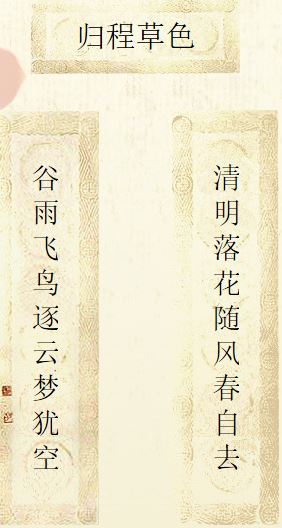 归程草色
清明落花随风春自去
谷雨飞鸟逐云梦犹空